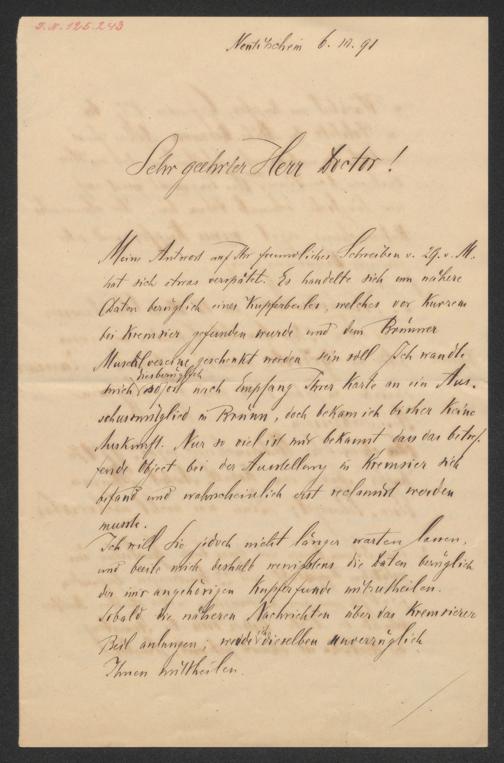 J.N. 125.243
Neutitschein 6. 10. 91
Sehr geehrter Herr Doctor!
Meine Antwort auf Ihr freundliches Schreiben v. 29. v. M.
hat sich etwas verspätet. Es handelte sich um nähere
Daten bezüglich eines Kupferbeiles, welches vor Kurzem
bei Kremsier gefunden wurde und dem Brünner
Musealvereine geschenkt worden sein soll. Ich wandte
mich diesbezüglich sofort nach Empfang Ihrer Karte an ein Aus-
schussmitglied in Brünn, doch bekam ich bisher keine
Auskunft. Nur so viel ist mir bekannt dass das betref-
fende Object bei der Ausstellung in Kremsier sich
befand und wahrscheinlich erst reclamirt werden
musste.
Ich will Sie jedoch nicht länger warten lassen,
und beeile mich deshalb wenigstens die Daten bezüglich
der mir angehörigen Kupferfunde mitzutheilen.
Sobald die näheren Nachrichten über das Kremsierer
Beil anlangen, werde ich dieselben unverzüglich
Ihnen mittheilen.